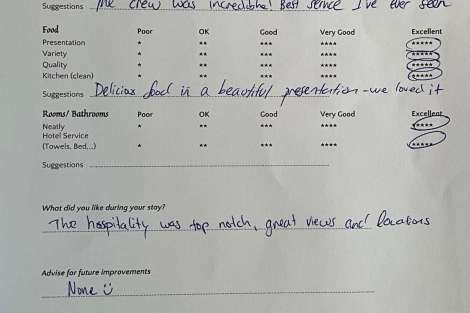 Suggestions The crew was incredible! Best service I've ever seen
Food Poor OK Good Very Good Excellent
Presentation * ** *** **** *****
Variety * ** *** **** *****
Quality * ** *** **** *****
Kitchen (clean) * ** *** **** *****
Suggestions Delicios food in a beautiful presentation - we loved it
Rooms/ Bathrooms Poor OK Good Very Good Excellent
Neatly * ** *** **** *****
Hotel Service
(Towels, Bed...) * ** *** **** *****
Suggestions
What did you like during your stay?
The hospitality was top notch, great views and locations
Advise for future improvements
None ☺